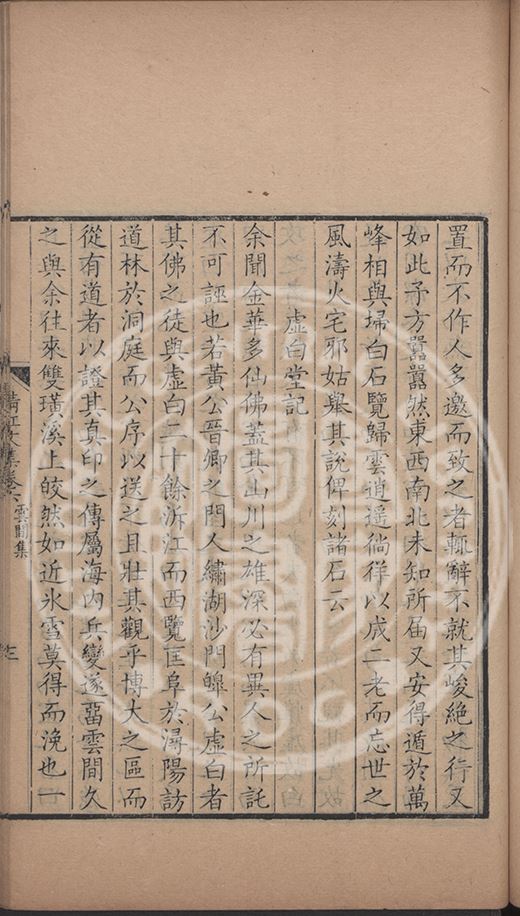 置而不作人多邀而致之者輒辭不就其峻絶之行又
如此予方囂囂然東西南北未知所届又安得遁於萬
峰相與埽白石覽歸雲逍遥徜徉以成二老而忘世之
風濤火宅邪姑舉其說俾刻諸石云
虚白堂記
余聞金華多仙佛蓋其山川之雄深必有異人之所託
不可誣也若黄公晉卿之門人繡湖沙門皥公虚白者
其佛之徒與虚白二十餘泝江而西覽匡阜於潯陽訪
道林於洞庭而公序以送之且壯其觀乎博大之區而
從有道者以證其真印之傳屬海内兵變遂畱雲間久
之與余往來雙璜溪上皎然如近氷雪莫得而浼也一
清江文集卷六 雲間集
三